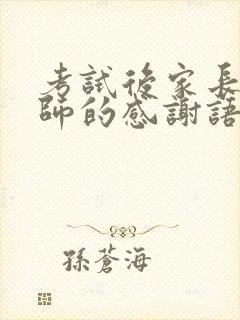 考試後家長
師的感謝語
孫蒼海